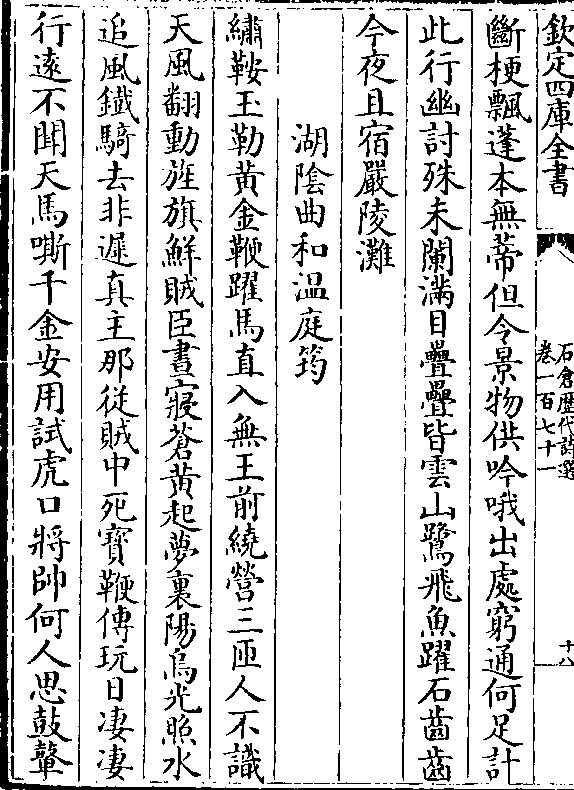 欽定四庫全書
石倉歴代詩選
卷一百七十一
十八
斷梗飄蓬本無蒂但令景物供吟哦出處窮通何足計
此行幽討殊未闌滿目疊疊皆雲山鷺飛魚躍石齒齒
今夜且宿嚴陵灘
湖陰曲和温庭筠
繡鞍玉勒黄金鞭躍馬直入無王前繞營三匝人不識
天風翻動旌旗鮮賊臣晝寢蒼黄起夢裏陽烏光照水
追風鐵騎去非遲真主那從賊中死寶鞭傳玩日凄凄
行逺不聞天馬嘶千金安用試虎口將帥何人思鼓鼙